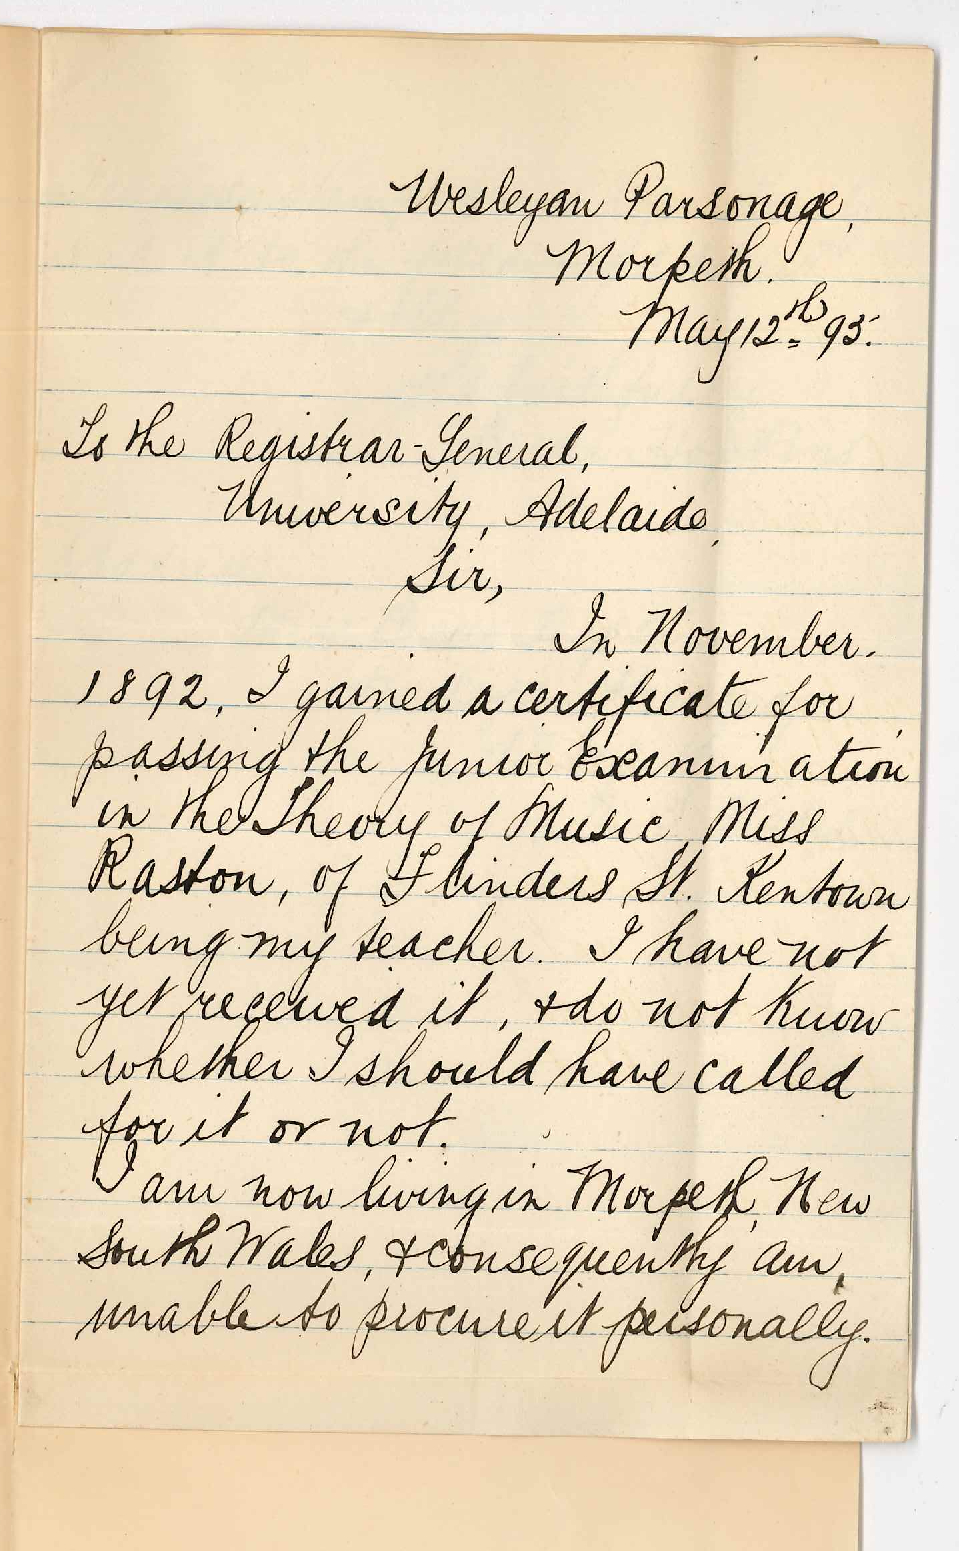 Wesleyan Parsonage,
Morpeth.
May 12th 95.
To the Registrar-General,
University, Adelaide,
Sir,
In November.
1892, I gained a certificate for
passing the Junior Examination
in the Theory of Music, Miss
Raston, of Flinders St. Kentown
being my teacher. I have not
yet received it, & do not know
whether I should have called
for it or not.
I am now living in Morpeth, New
South Wales, & consequently am,
unable to procure it personally.